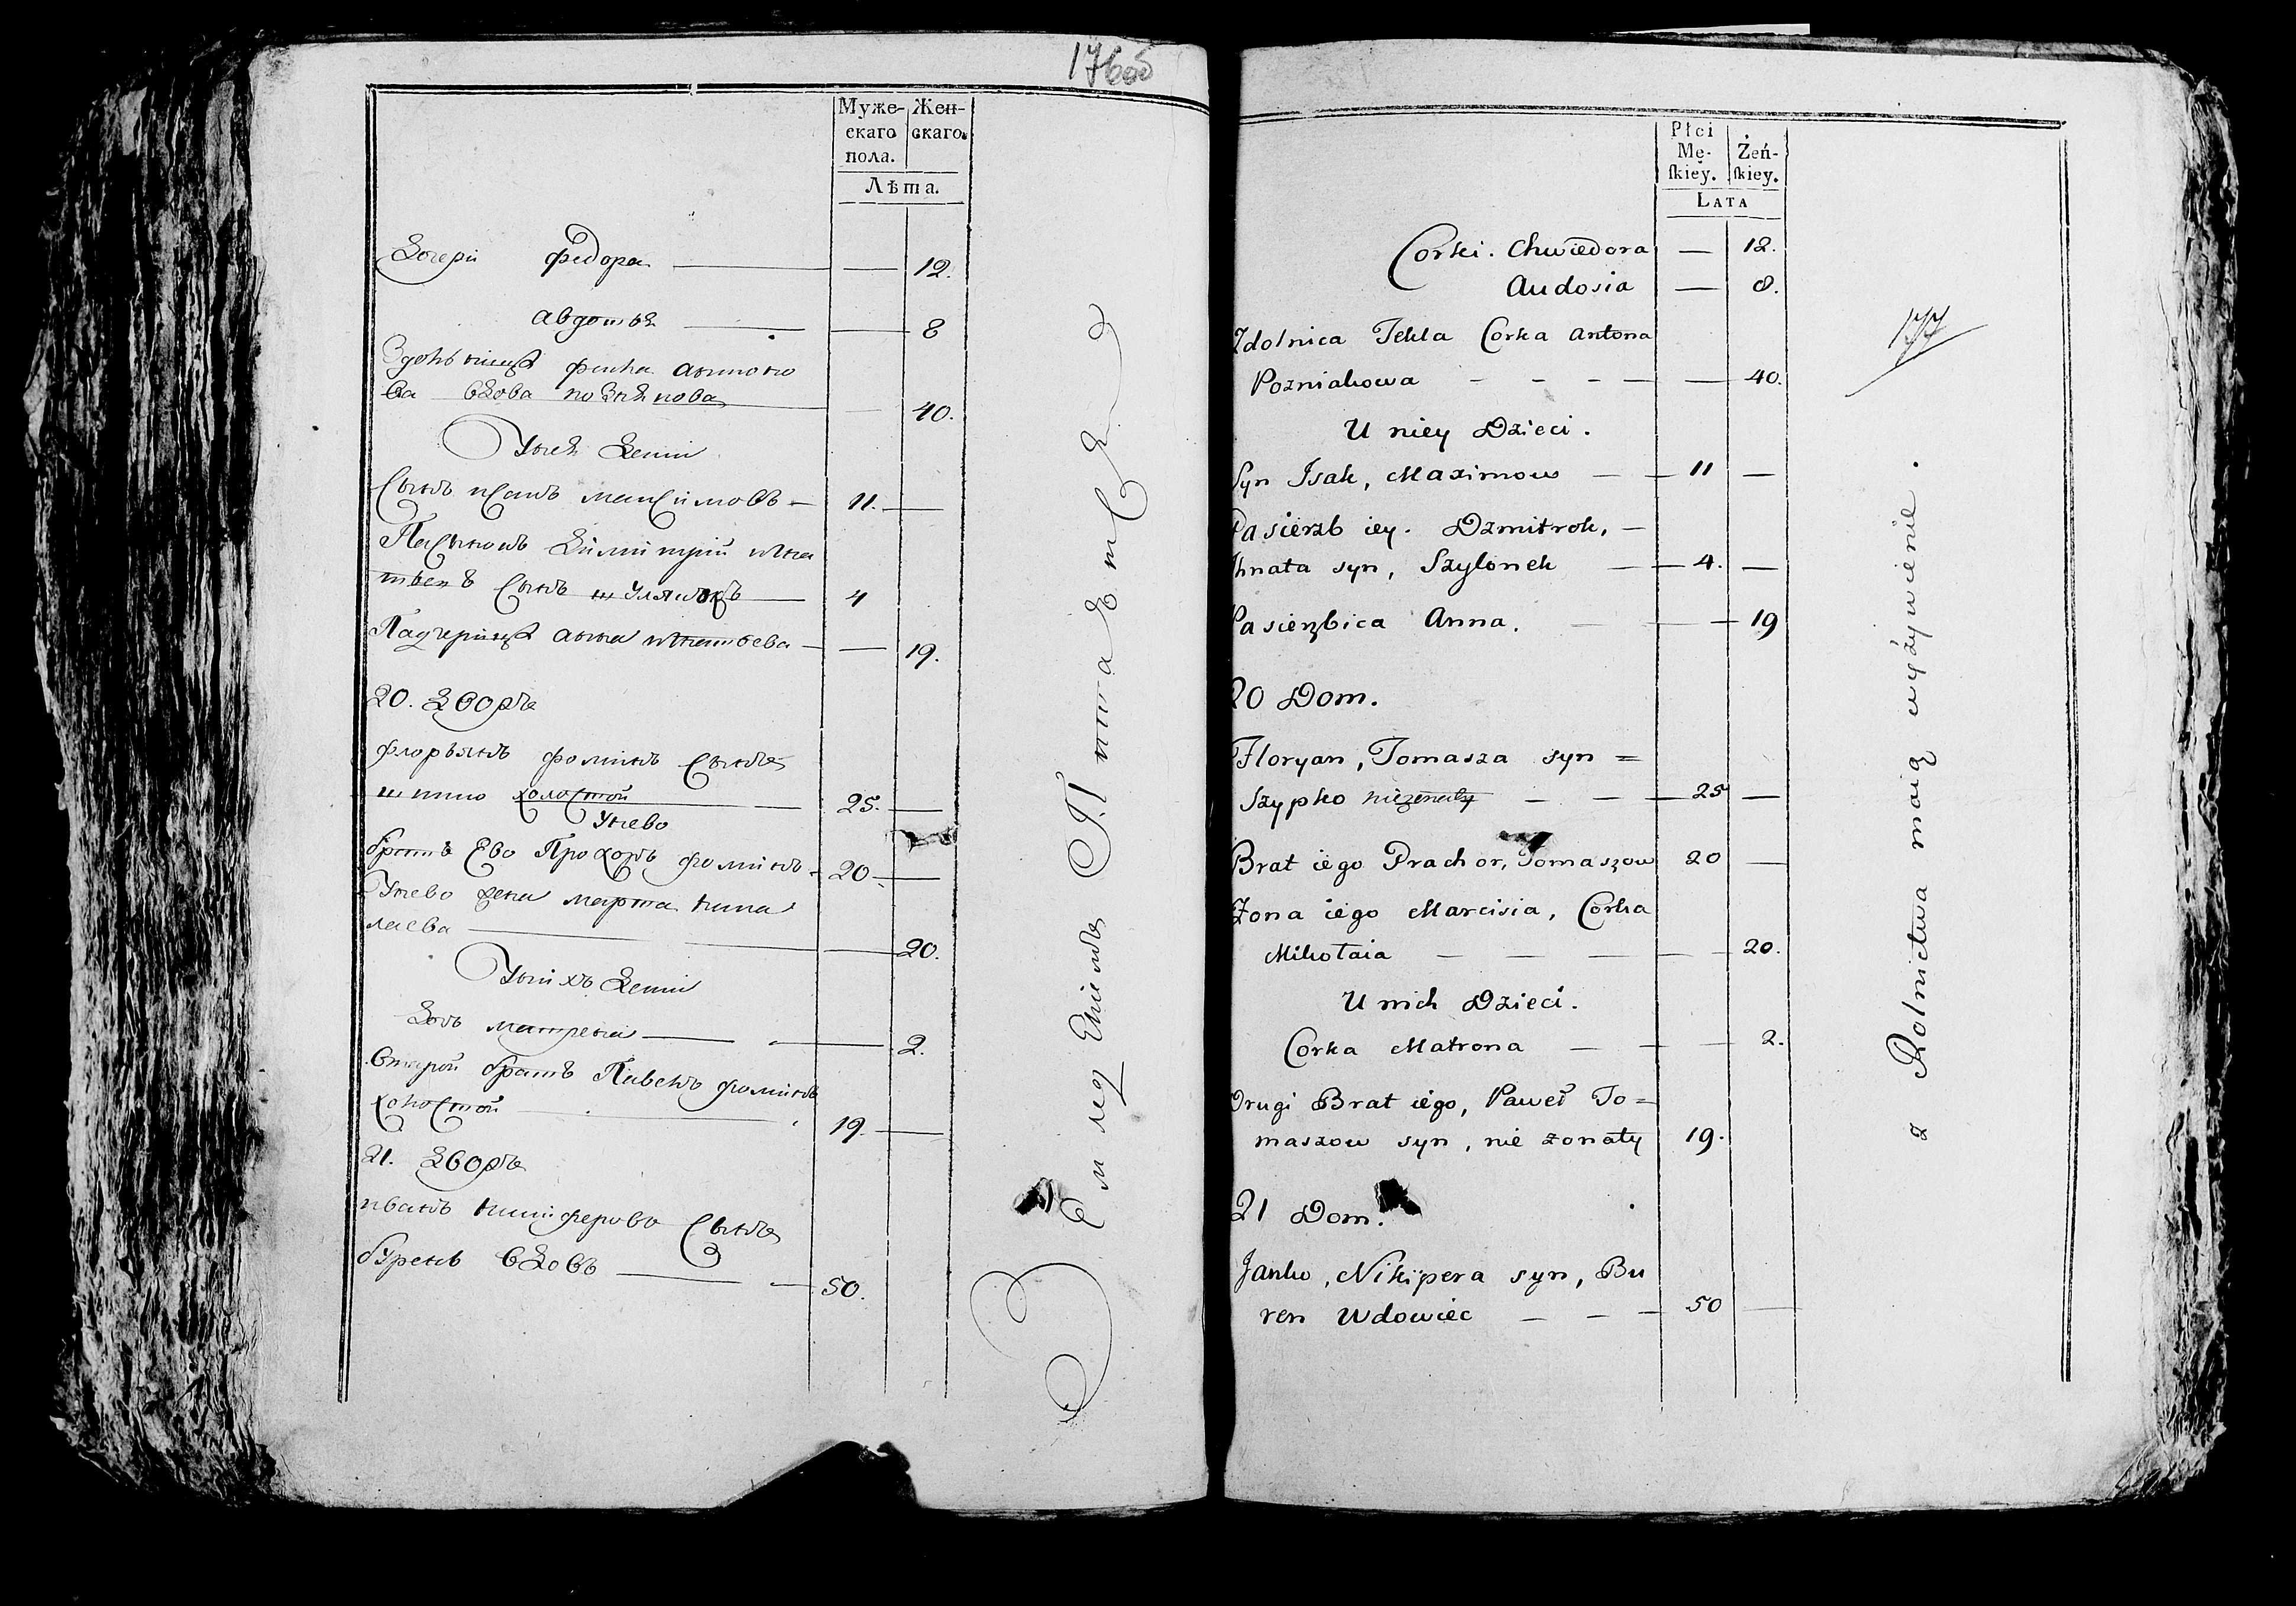 176об
Муже- Жен-
скаго скаго.
пола.
Лѣта.
Дочери Федора — — 12.
Авдотья — — 8
Фекла Антоно
ва вдова Позьнякова — 40.
У нея Дети
Сынъ Исакъ Максимовъ — 11. —
Пасынокъ Димитрий Игна
тьевъ сынъ — 4
Падчерица Анна Игнатьева — — 19.
20. Дворъ
Флорьянъ Фоминъ Сынъ
Шипко холостой — 25. —
У нево
братъ Ево Прохоръ Фоминъ — 20 —
У нево жена Марта Нико
лаева — — 20.
У нихъ Дети
Дочь Матрена — — 2.
Второй братъ Павелъ Фоминъ
холостой — 19. —
21. Дворъ
Иванъ Никифоровъ Сынъ
Буренъ вдовъ — 50.
Землед Ениемъ Питаетса
Płci
Mę- Żeń-
skiey. skiey.
LATA
Corki. Chwiedora — 12.
Audosia — 8.
Zdolnica Tekla Corka Antona
Pozniakowa - - - — — 40.
U niey Dzieci.
Syn Isak, Maximow — — 11 —
Pasierzb iey. Dzmitrok, —
Ihnata syn, Szylonek — — 4. —
Pasierzbica Anna. — — 19
20 Dom.
Floryan, Tomasza syn =
Szypko nieżonaty — — — 25 —
Brat iego Prachor, Tomaszow 20 —
Zona iego Marcisia, Corka
Mikołaia — — — — 20.
U nich Dzieci.
Corka Matrona — — — 2.
Drugi Brat iego, Paweł To=
maszow syn, nie zonaty 19.
21 Dom.
Janko, Nikipera syn, Bu
ren Wdowiec — — — 50 —
177
z Rolnictwa maią wyżywienie.